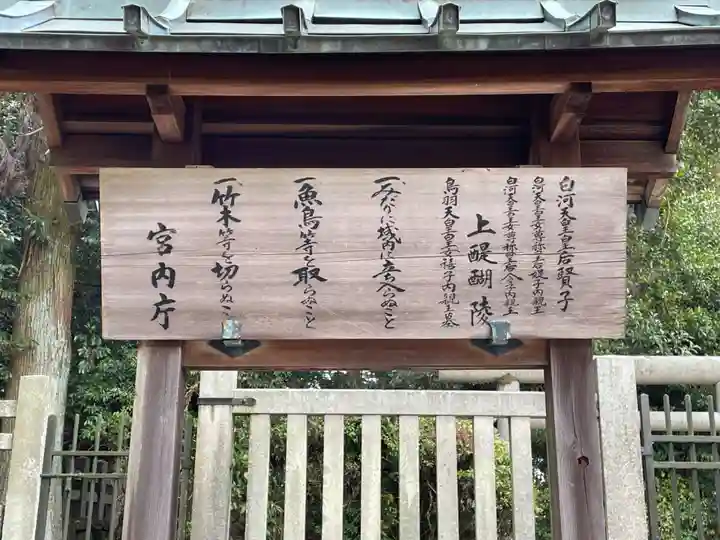 白河天皇皇后賢子
白河天皇皇女尊称皇后媞子内親王
白河天皇皇女尊称皇后令子内親王
上醍醐陵
鳥羽天皇皇女禧子内親王墓
一、みだりに域内に立入らぬこと
一、魚鳥等を取らぬこと
一、竹木等を切らぬこと
宮内庁